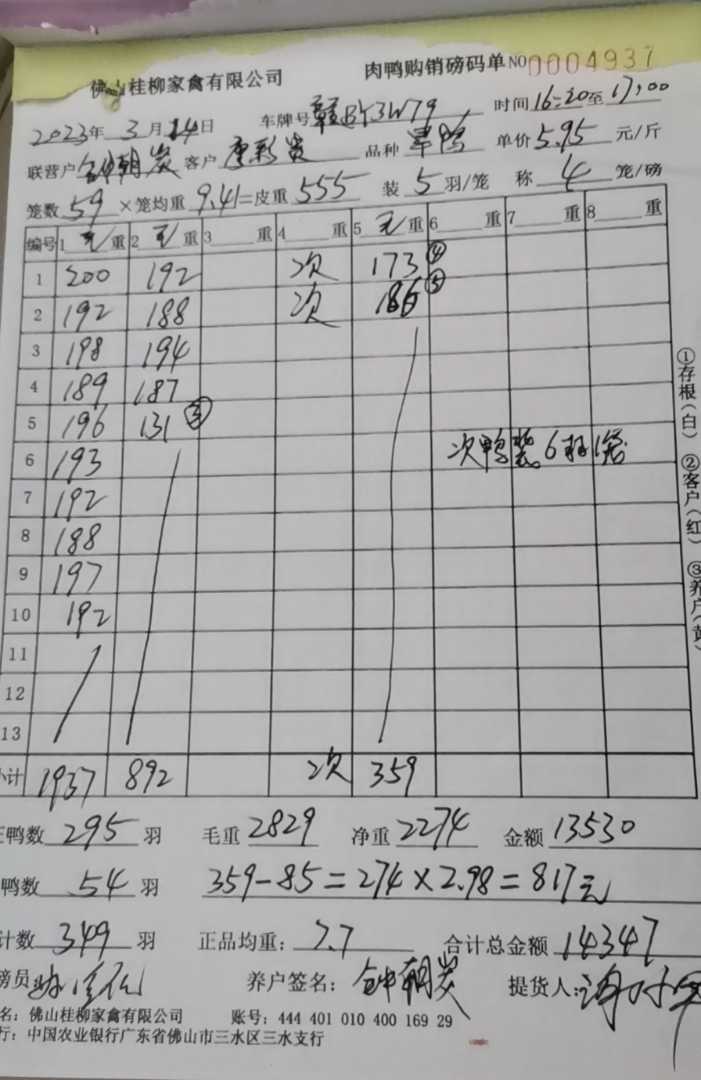 佛山桂柳家禽有限公司 肉鸭购销磅码单 NO 0004937
2023年 3月 14日 车牌号 赣BY3W79 时间 16:20至17:00
联营户 钟朝炭 客户 唐彩贵 品种 旱鸭 单价 5.95 元/斤
笼数 59 ×笼均重 9.41=皮重 555 装 5 羽/笼 称 4 笼/磅
编号 1 毛 重 2 毛 重 3 重 4 重 5 毛 重 6 重 7 重 8 重
1 200 192 次 173 ④
2 192 188 次 186 ⑤
3 198 194
4 189 187
5 196 131 ③
6 193 次鸭装6羽1笼
7 192
8 188
9 197
10 192
11
12
13
小计 1937 892 次 359
正鸭数 295 羽 毛重 2829 净重 2274 金额 13530
鸭数 54 羽 359-85=274×2.98=817元
计数 349 羽 正品均重: 7.7 合计总金额 14347
磅员 养户签名: 钟朝炭 提货人:
名: 佛山桂柳家禽有限公司 账号: 444 401 010 400 169 29
行: 中国农业银行广东省佛山市三水区三水支行
①存根(白) ②客户(红) ③养户(黄)